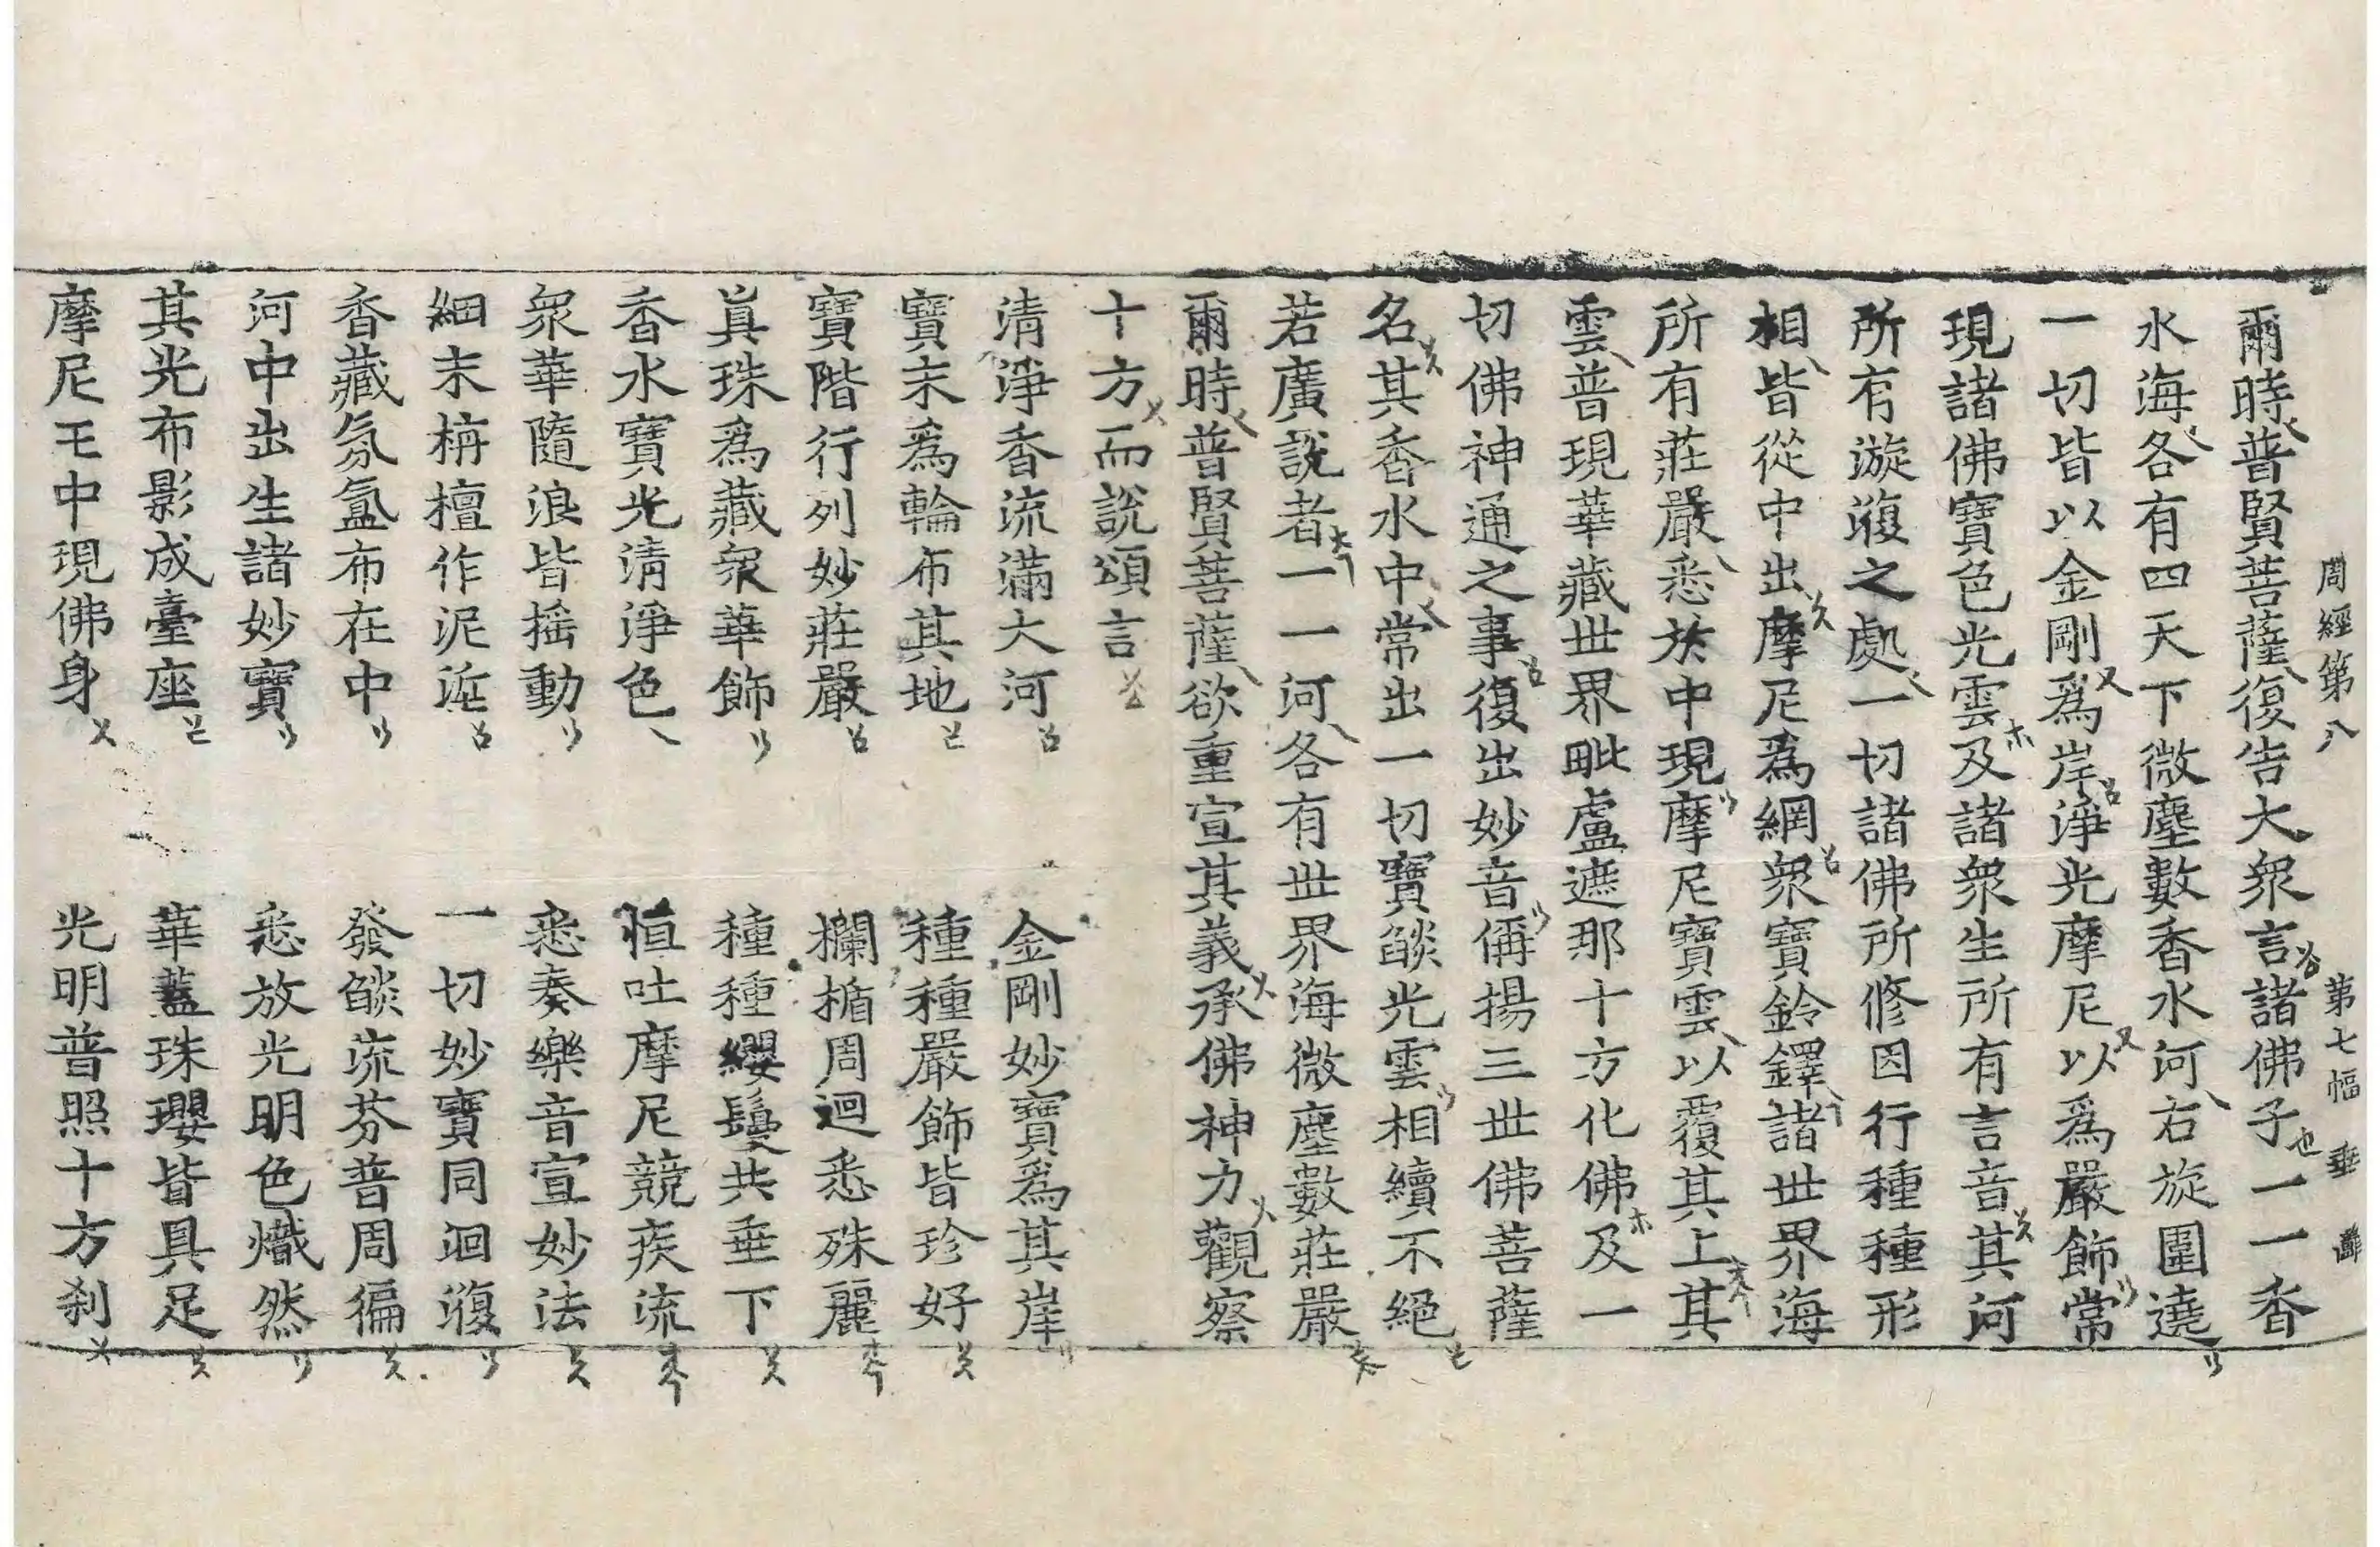 周經第八 第七幅 垂
爾時普賢菩薩復告大衆言諸佛子一一香
水海各有四天下微塵數香水河右旋圍遶
一切皆以金剛爲岸淨光摩尼以爲嚴飾常
現諸佛寶色光雲及諸衆生所有言音其河
所有漩澓之處一切諸佛所修因行種種形
相皆從中出摩尼爲網衆寶鈴鐸諸世界海
所有莊嚴悉於中現摩尼寶雲以覆其上其
雲普現華藏世界毗盧遮那十方化佛及一
切佛神通之事復出妙音偁揚三世佛菩薩
名其香水中常出一切寶燄光雲相續不絕
若廣說者一一河各有世界海微塵數莊嚴
爾時普賢菩薩欲重宣其義承佛神力觀察
十方而說頌言
清淨香流滿大河 金剛妙寶爲其岸
寶末爲輪布其地 種種嚴飾皆珍好
寶階行列妙莊嚴 欄楯周迴悉殊麗
眞珠爲藏衆華飾 種種纓鬘共垂下
香水寶光清淨色 恒吐摩尼競疾流
衆華隨浪皆搖動 悉奏樂音宣妙法
細末栴檀作泥𡊠 一切妙寶同洄澓
香藏氛氳布在中 發燄流芬普周徧
河中出生諸妙寶 悉放光明色熾然
其光布影成臺座 華蓋珠瓔皆具足
摩尼王中現佛身 光明普照十方刹